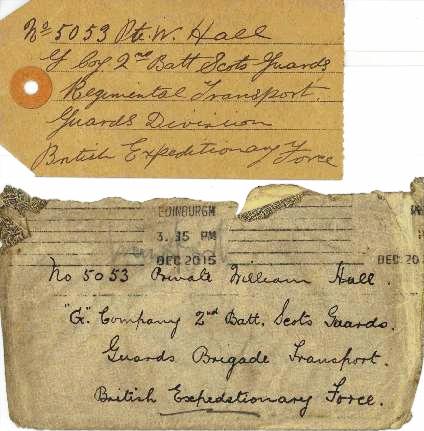 No 5053 Pte. W. Hall
G Coy. 2nd Batt Scots Guards
Regimental Transport.
Guards Division
British Expeditionary Force
EDINBURGH
3.15 PM
DEC 20 15
DEC 20
No 5053 Private William Hall.
"G" Company 2nd Batt. Scots Guards.
Guards Brigade Transport.
British Expeditionary Force.